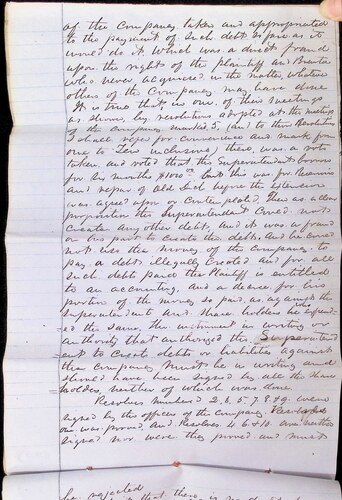 of the Company taken and appropriated
to the payment of such debt so far as it
would do it, which was a direct fraud
upon the rights of the plaintiff and
who never acquiesced in the matter, whatever
others of the Company may have done
It is true that in one of their meetings
as shown by resolutions adopted at the meetings
of the company marked 5, (and to these Resolutions
I shall refer for convenience and mark from
one to Ten inclusive) there was a vote
taken and voted that the Superintendent borrow
for six months $1000 but this was for
and repair of old ditch before the extension
was agreed upon or contemplated. Then as a
proposition the Superintendent could not
create any other debt, and it was a fraud
on his part to create the debt, and he could
not use the money of the company to
pay a debt illegally created and for all
such debt paid the Plaintiff is entitled
to an accounting, and a decree for his
portion of the money so paid, as against the
Superintendent and share holders he
ed the same. The instrument in writing or
authority that authorized the Superintend
ent to create debts or liabilities against
the Company must be in writing and
should have been signed by all the share
holders, neither of which was done
Resolves numbered 2, 6, 5, 7, 8, & 9, were
signed by the officers of the Company.
one was proved, and resolves 4, 6 & 10 are neither
signed nor were they proved and must
be rejected
that there is